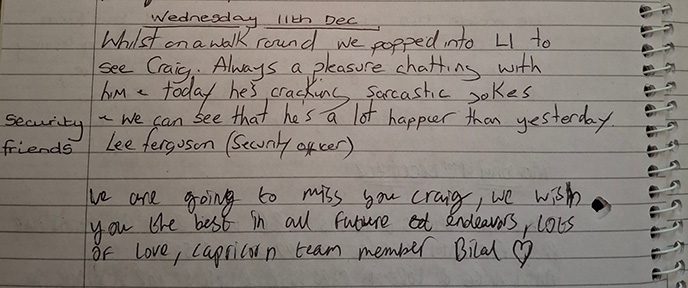 Wednesday 11th Dec
Whilst on a walk round we popped into L1 to
see Craig. Always a pleasure chatting with
him & today he's cracking sarcastic jokes
Security & we can see that he's a lot happier than yesterday.
friends Lee ferguson (Security officer)
We are going to miss you craig, we wish
you the best in all future endeavors, LOts
OF Love, capricorn team member Bilal ♡